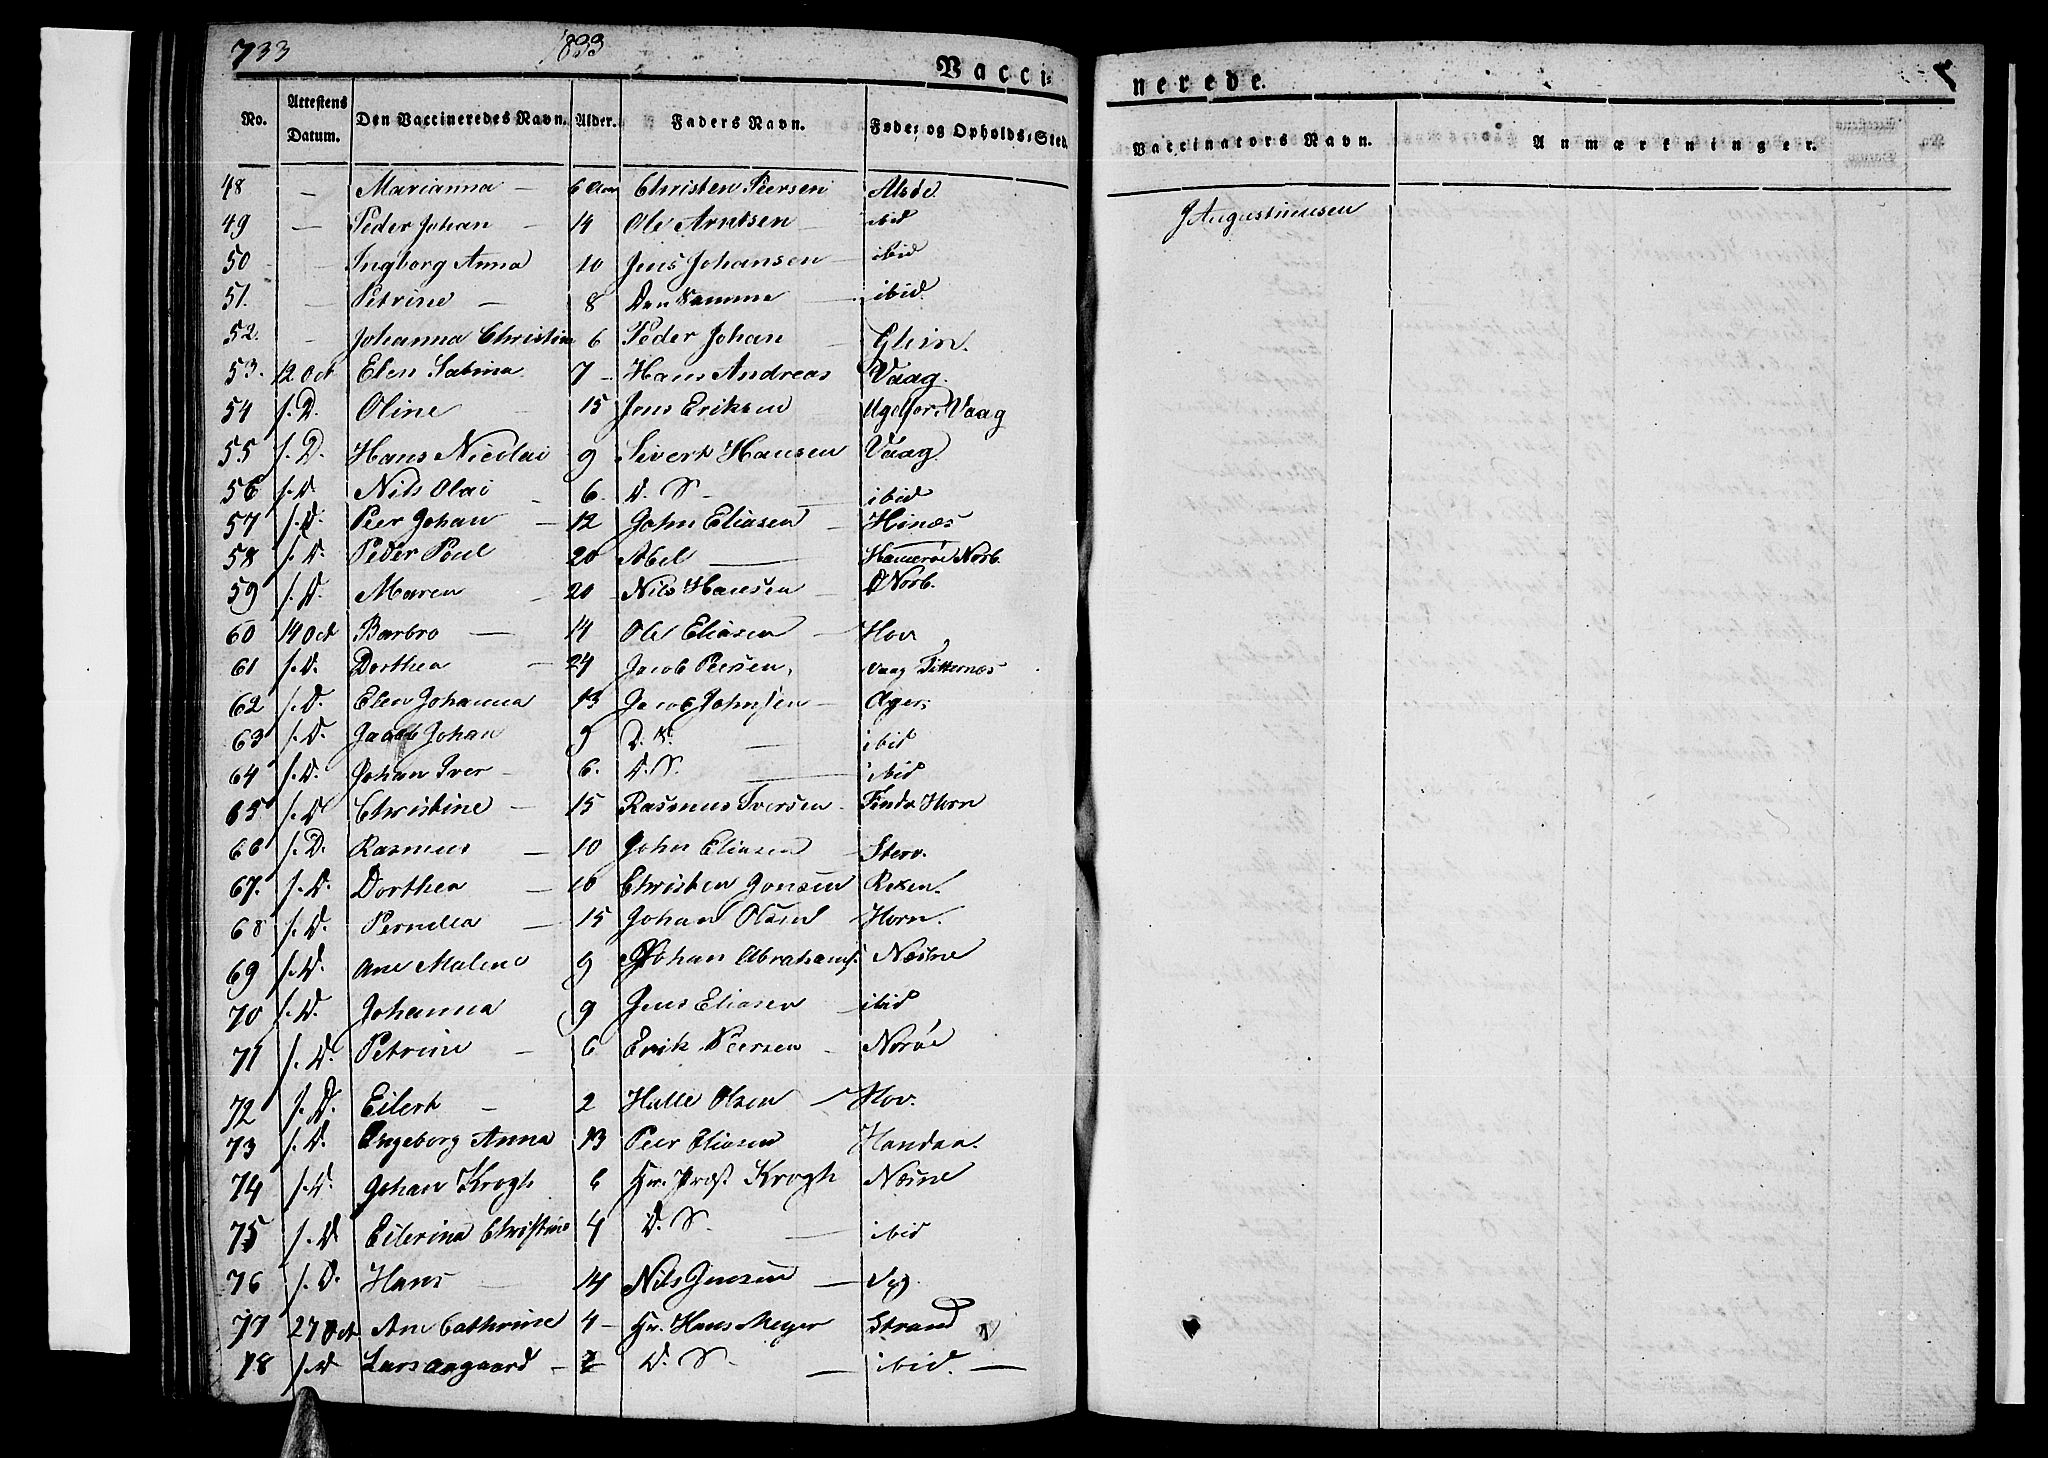 733 1833
Vacci= nerede.
No. Attestens Datum. Den Vaccineredes Navn. Alder. Faders Navn. Føde= og Opholds=Sted. Vaccinators Navn. Anmærkninger.
48 — Marianna — 6 Aar Christen Peersen Alsde
49 — Peder Johan — 14 Ole Arntsen ibid J Augustinusen
50 — Ingborg Anna 10 Jens Johansen — ibid
51. — Petrine — 8 Den Samme — ibid.
52. — Johanna Christin 6 Peder Johan — Glein.
53. 12 Oct Elen Sabina 7 — Hans Andreas Vaag.
54 s. D. Oline 15 Jens Eriksen Vaag
55 s. D. Hans Nicolai 9 Sivert Hansen Vaag
56 s. D Nils Olai — 6. D. S — ibid
57 s. D. Peer Johan — 12 John Eliasen — Hinæs
58 s. D Peder Poul 20 Abel — Hamerøe Norb.
59 s. D. Maren — 20 — Nils Hansen — D Norb.
60 14 Oct Barbro — 14 Ole Eliasen — Hov
61 s. D. Dorthea — 24 Jacob Peersen, Vaag
62 s. D. Elen Johanna 13 Jacob Johnsen — Ager;
63 s. D. Jacob Johan 9 D. S. — ibid
64 s. D. Johan Iver — 6. D. S. — ibid
65 s. D Christine — 15 Rasmus Iversen — Horn
66 s. D. Rasmus — 10 John Eliasen —
67. s. D. Dorthea — 10 Christen Jonsen Rosen.
68 s. D. Pernella — 15 Johan Olsen Horn.
69 s. D. Ane Malene 9 Johan Abrahams. Næsne
70 s. D. Johanna 9 Jens Eliasen — ibid
71 s. D. Petrine — 6 Erik Peersen — Norøe
72 s. D. Eilert — 2 Halle Olsen — Hov.
73 s. D. Engeborg Anna 13 Peer Eliasen Handaa.
74 s. D. Johan Krogh 6 Hr. Præst Krogh Næsne
75 s. D Eilerina Christine 4 D. S. — ibid
76 s. D. Hans — 14 Nils Jensen —
77 27 Oct. Ane Cathrine 4 — Hr. Hans Meyer Strand
78 s. D Lars Aagaard — 2 D. S — — ibid. —